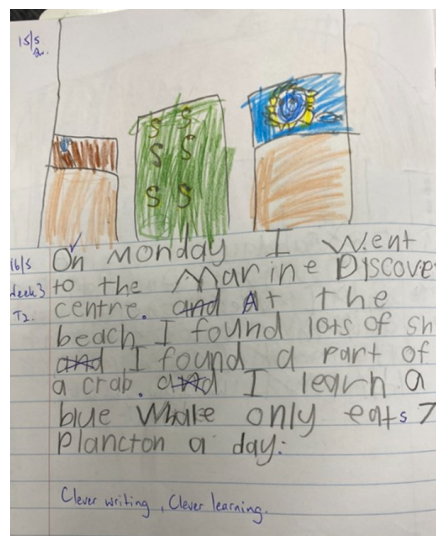 15/5
S S
S S
S S
16/5 On Monday I went
Week 3 to the Marine Discove
T2. centre. and At the
beach I found lots of sh
and I found a part of
a crab. and I learn a
blue Whale only eats 7
Plancton a day.
Clever writing, Clever learning.